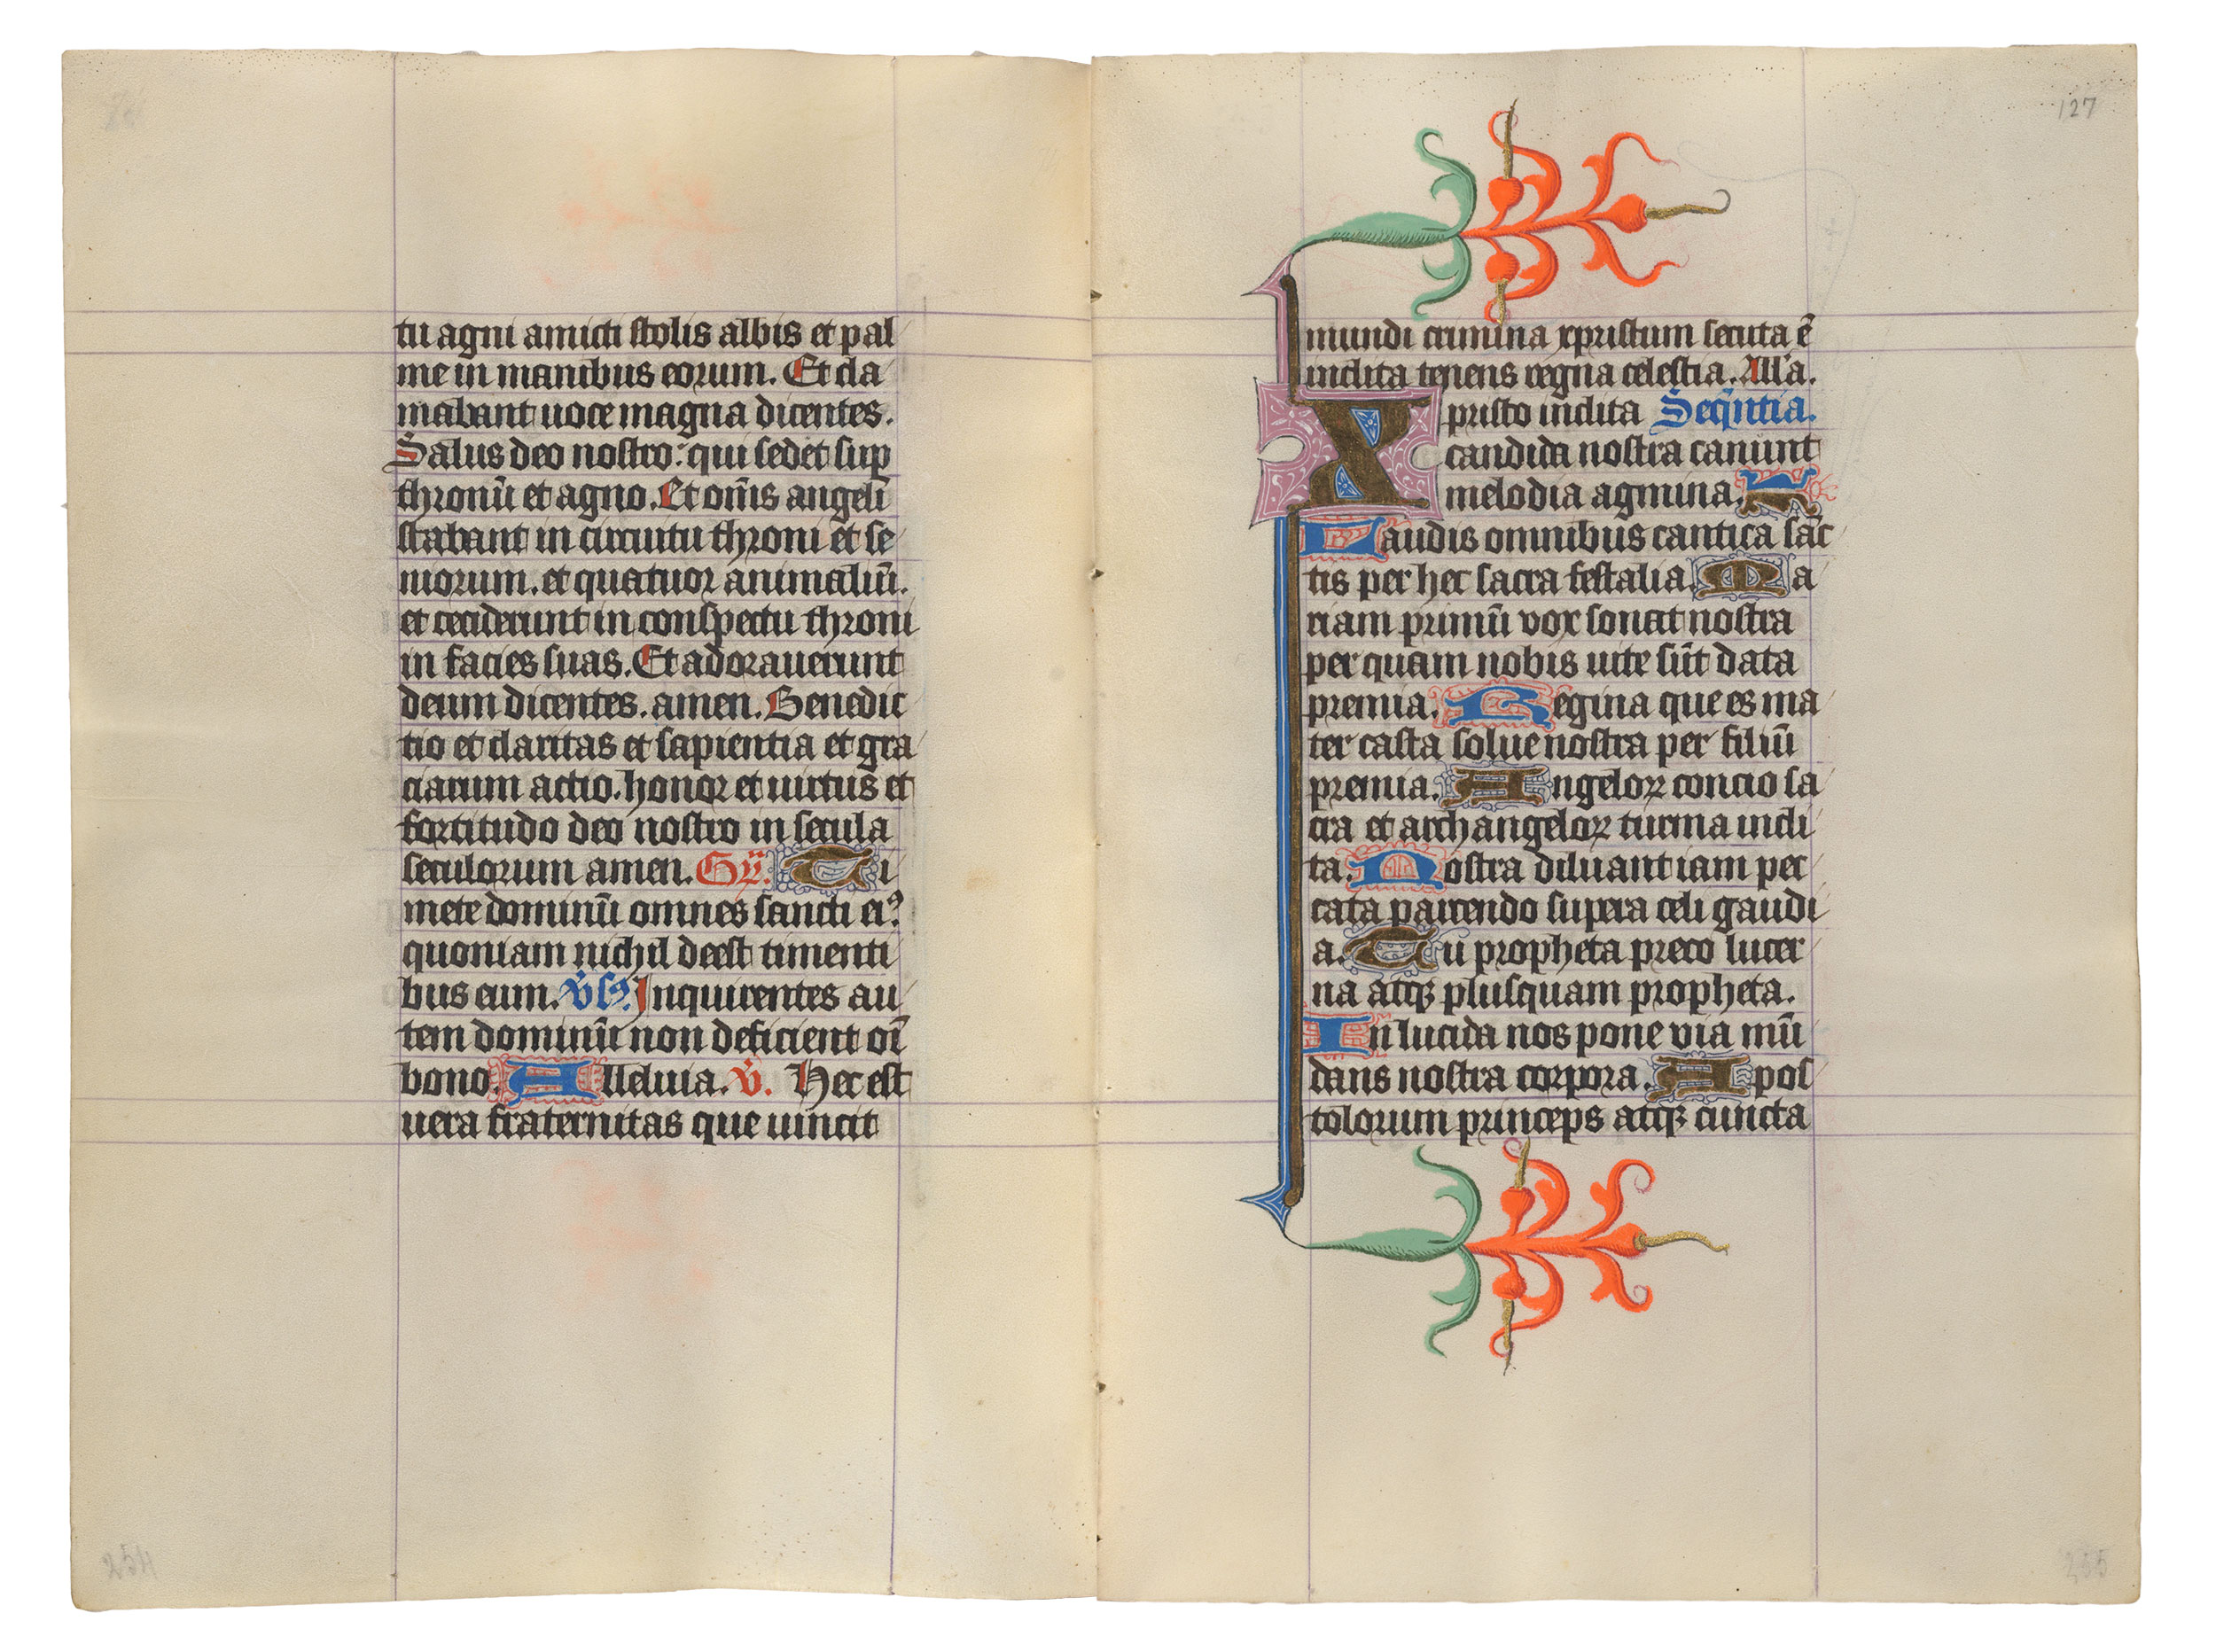 tu agni amicti stolis albis et pal
me in manibus eorum. Et cla
mabant uoce magna dicentes.
Salus deo nostro: qui sedet sup
thronū et agno. Et om̄s angeli
stabant in circuitu throni et se
niorum. et quatuor animaliū.
et ceciderunt in conspectu throni
in facies suas. Et adorauerunt
deum dicentes. amen. Benedic
tio et claritas et sapientia et gra
ciarum actio. honor et uirtus et
fortitudo deo nostro in secula
seculorum amen. Gr̄. Ti
mete dominū omnes sancti eiꝰ
quoniam nichil deest timenti
bus eum. v̄sꝰ. Inquirentes au
tem dominū non deficient oī
bono. Alleluia. v̄. Hec est
uera fraternitas que uincit
254
127
mundi crimina xpristum secuta ē
inclita tenens regna celestia. All'a.
Xpristo inclita Seq̄ntia.
candida nostra canunt
melodia agmina.
Laudis omnibus cantica sāc
tis per hec sacra festalia. Ma
riam primū vox sonat nostra
per quam nobis uite sūt data
premia. Regina que es ma
ter casta solue nostra per filiū
premia. Angeloꝝ concio sa
cra et archangeloꝝ turma incli
ta. Nostra diluant iam pec
cata parcendo supera celi gaudi
a. Tu propheta preco lucer
na atqꝫ plusquam propheta.
In lucida nos pone via mū
dans nostra corpora. Apos
tolorum princeps atqꝫ cuncta
255